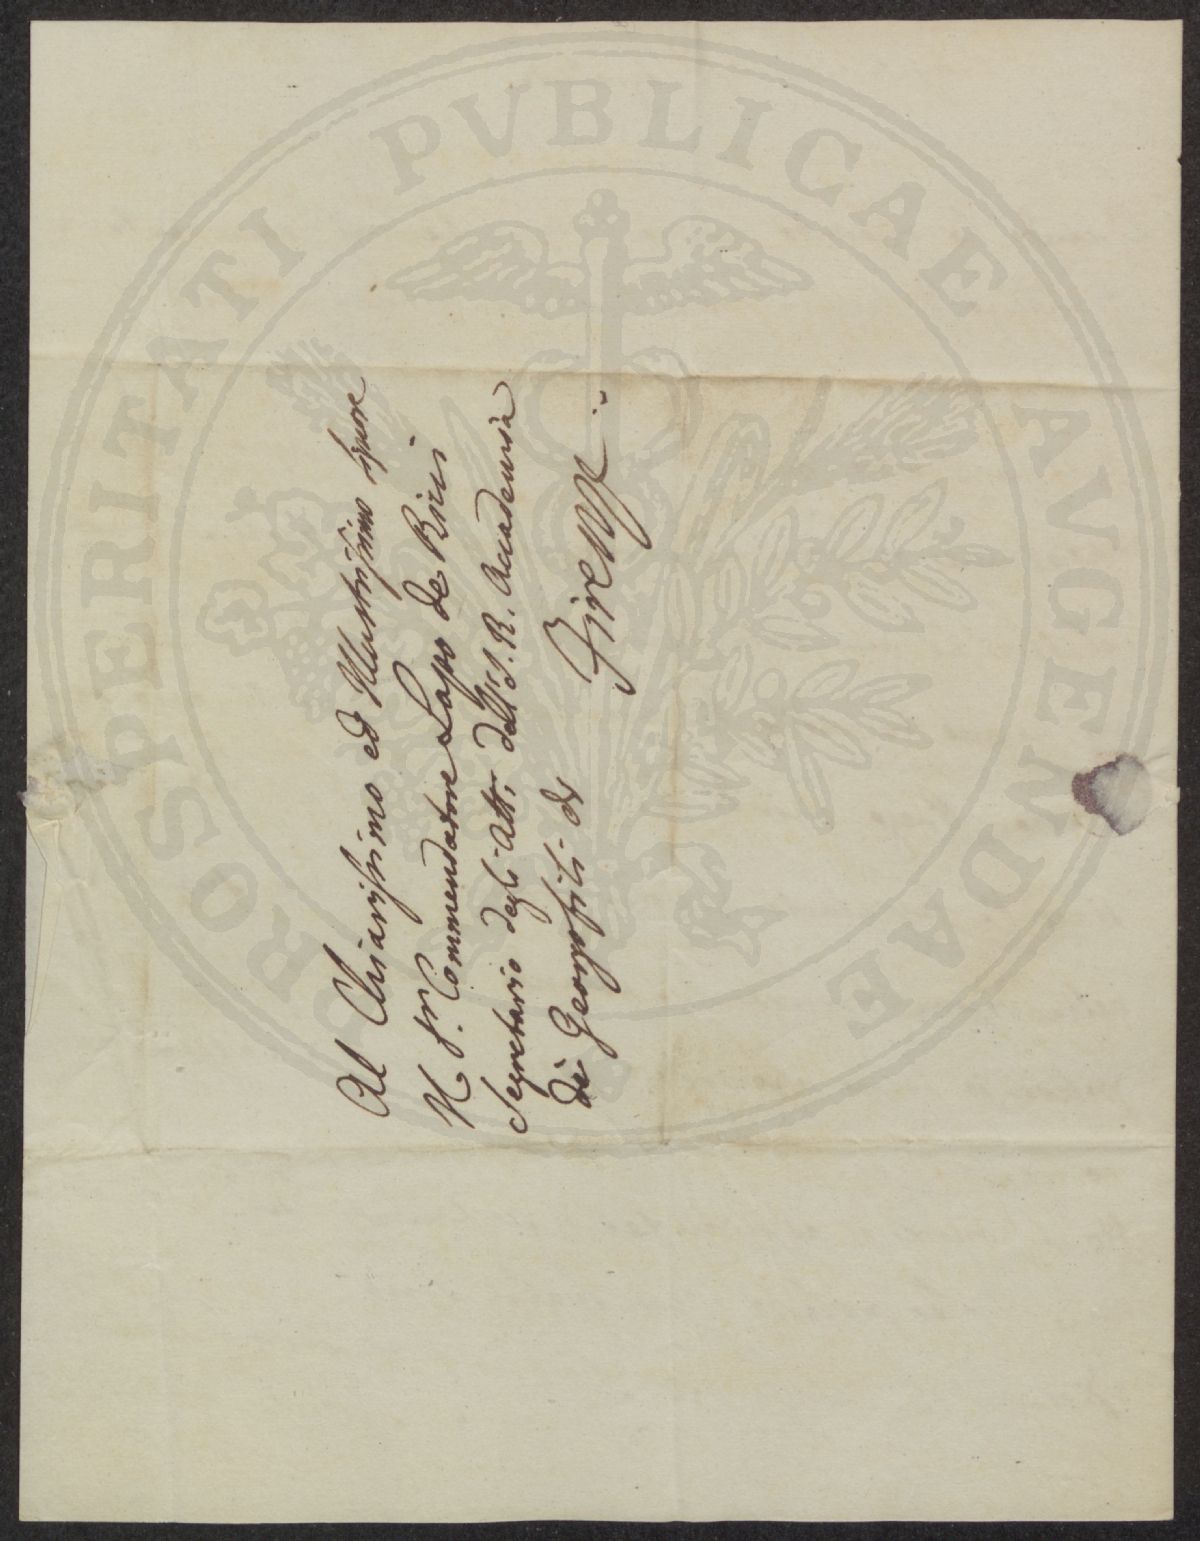 Al Chiarissimo ed Illustrissimo Signore
Il Sr. Commendatore Lapo de Ricci
Segretario degli Atti dell' I. R. Accademia
dei Georgofili di
Firenze
PROSPERITATI PVBLICAE AVGENDAE